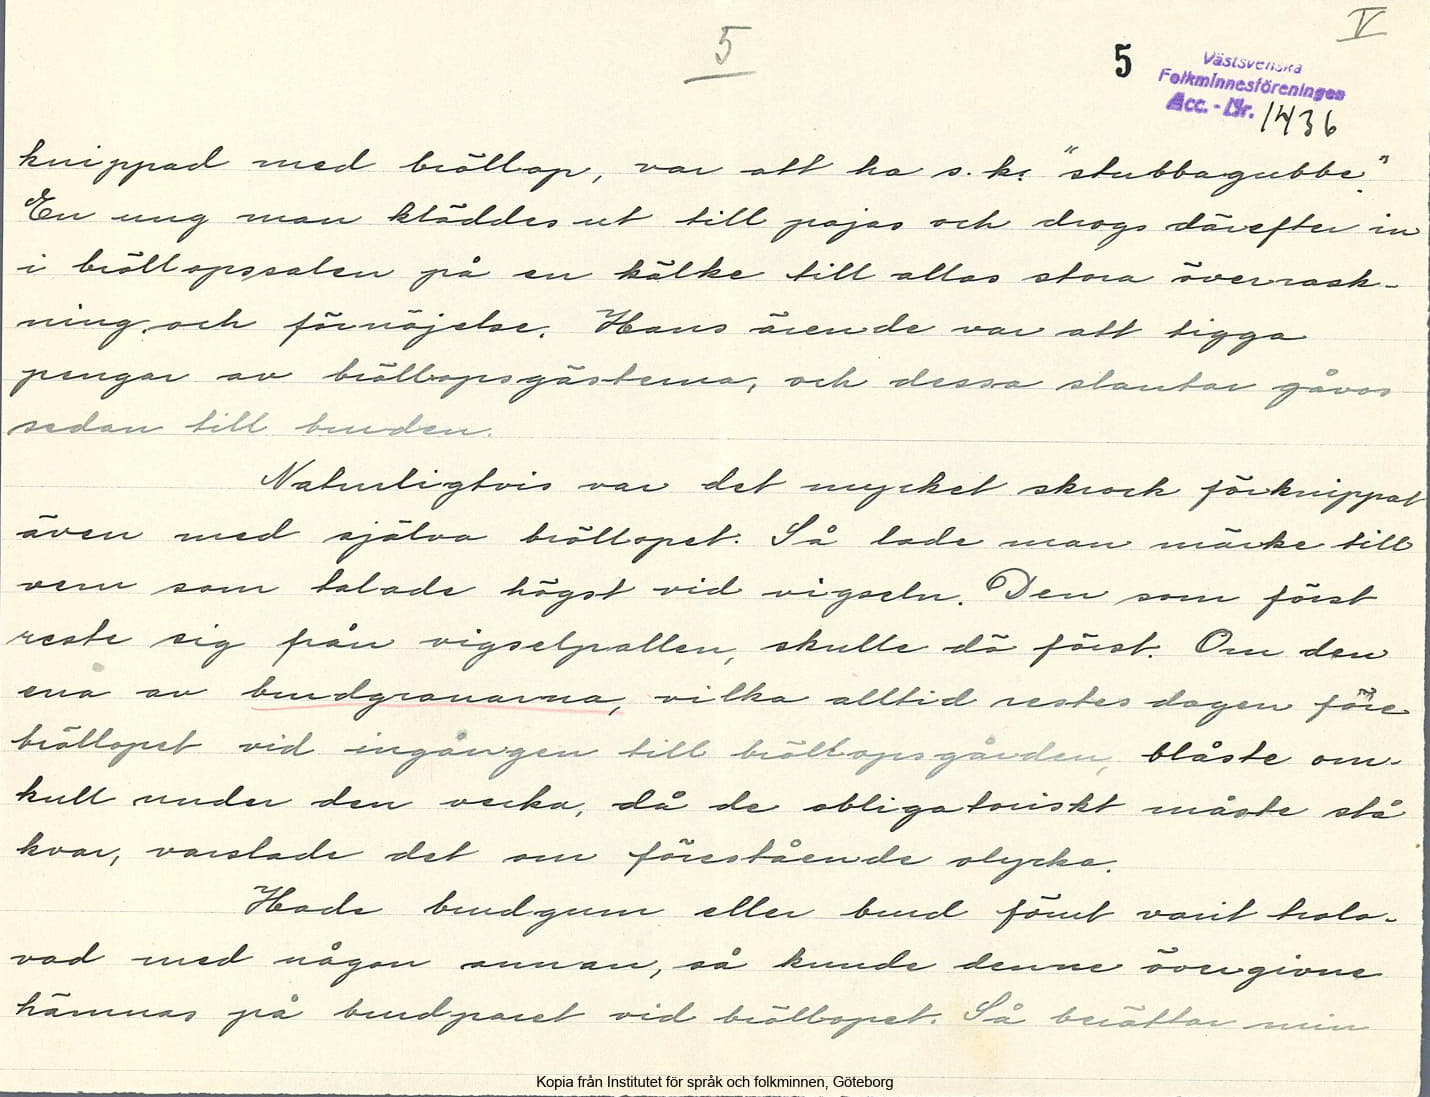 5
5
V
Västsvenska
Folkminnesföreningen
Acc. - Nr. 1436
knippad med bröllop, var att ha s.k. "stubbagubbe".
En ung man kläddes ut till pajas och drogs därefter in
i bröllopssalen på en kälke till allas stora överrask-
ning och förnöjelse. Hans ärende var att tigga
pengar av bröllopsgästerna, och dessa slantar gåvos
sedan till bruden.
Naturligtvis var det mycket skrock förknippat
även med själva bröllopet. Så lade man märke till
vem som talade högst vid vigseln. Den som först
reste sig från vigselpallen, skulle dö först. Om den
ena av brudgranarna, vilka alltid restes dagen före
bröllopet vid ingången till bröllopsgården, blåste om-
kull under den vecka, då de obligatoriskt måste stå
kvar, varslade det om förestående olycka.
Hade brudgum eller brud förut varit trolo-
vad med någon annan, så kunde denne övergivne
hämnas på brudparet vid bröllopet. Så berättar min
Kopia från Institutet för språk och folkminnen, Göteborg